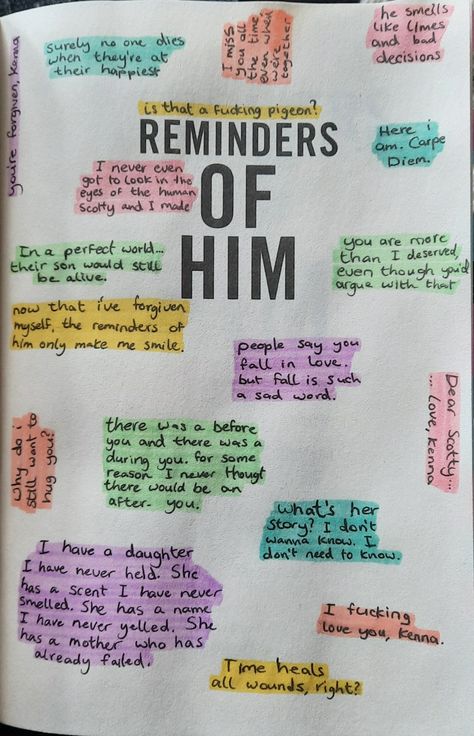 you're forgiven, Kenna
surely no one dies
when they're at
their happiest
I miss
you all
the time,
even when
we're
together
he smells
like limes
and bad
decisions
is that a fucking pigeon?
REMINDERS
OF
HIM
Here i
am. Carpe
Diem.
I never even
got to look in the
eyes of the human
Scotty and I made
In a perfect world...
their son would still
be alive.
you are more
than I deserved,
even though you'd
argue with that
now that i've forgiven
myself, the reminders of
him only make me smile.
people say you
fall in love.
but fall is such
a sad word.
Dear Scotty...
... Love, Kenna
why do i
still want to
hug you?
there was a before
you and there was a
during you. for some
reason I never thougt
there would be an
after- you.
what's her
story? I don't
wanna know. I
don't need to know.
I have a daughter
I have never held. She
has a scent I have never
smelled. She has a name
I have never yelled. She
has a mother who has
already failed.
I fucking
love you, Kenna.
Time heals
all wounds, right?